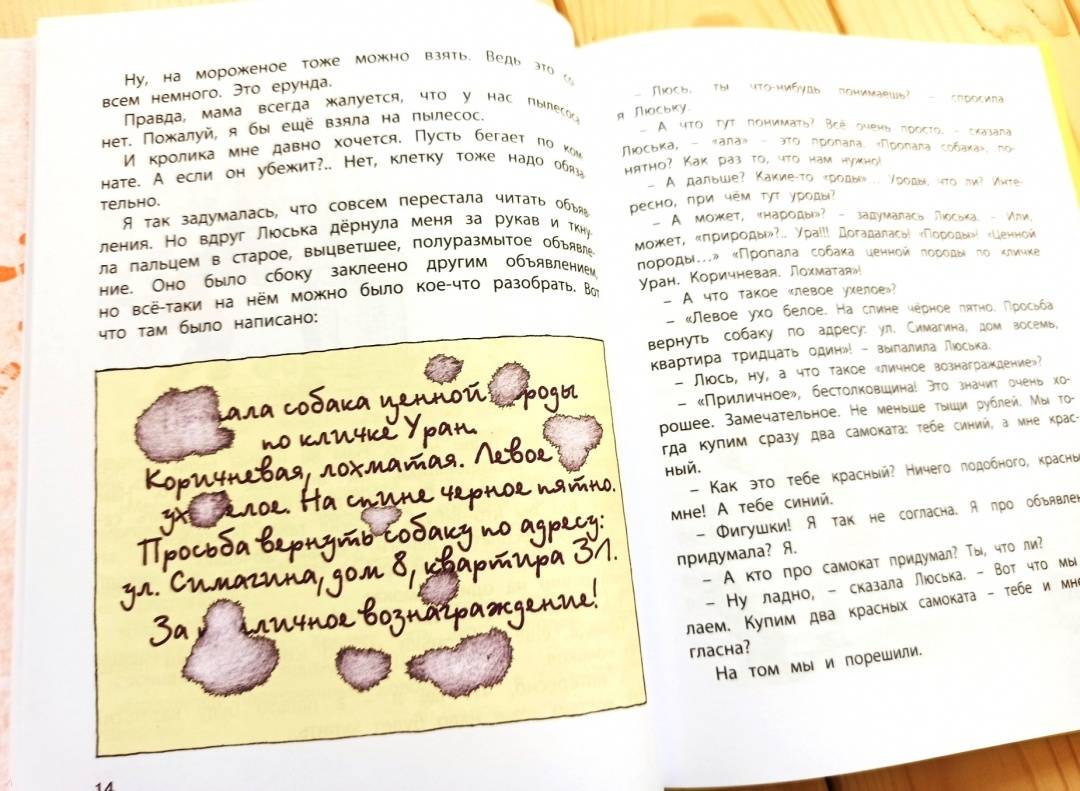 Ну, на мороженое тоже можно взять. Ведь это со
всем немного. Это ерунда.
Правда, мама всегда жалуется, что у нас пылесоса
нет. Пожалуй, я бы ещё взяла на пылесос.
И кролика мне давно хочется. Пусть бегает по ком
нате. А если он убежит?.. Нет, клетку тоже надо обяза
тельно.
Я так задумалась, что совсем перестала читать объяв
ления. Но вдруг Люська дёрнула меня за рукав и ткну
ла пальцем в старое, выцветшее, полуразмытое объявле
ние. Оно было сбоку заклеено другим объявлением,
но всё-таки на нём можно было кое-что разобрать. Вот
что там было написано:
ала собака ценной роды
по кличке Уран.
Коричневая, лохматая. Левое
ух елое. На спине черное пятно.
Просьба вернуть собаку по адресу:
ул. Симагина, дом 8, квартира 31.
За личное вознаграждение!
14
– Люсь, ты что-нибудь понимаешь? – спросила
я Люську.
– А что тут понимать? Всё очень просто, – сказала
Люська, – «ала» – это пропала. «Пропала собака», по-
нятно? Как раз то, что нам нужно!
– А дальше? Какие-то «роды»... Уроды, что ли? Инте-
ресно, при чём тут уроды?
– А может, «народы»? – задумалась Люська. – Или,
может, «природы»?.. Ура!!! Догадалась! «Породы»! «Ценной
породы...» «Пропала собака ценной породы по кличке
Уран. Коричневая. Лохматая»!
– А что такое «левое ухелое»?
– «Левое ухо белое. На спине чёрное пятно. Просьба
вернуть собаку по адресу: ул. Симагина, дом восемь,
квартира тридцать один»! – выпалила Люська.
– Люсь, ну, а что такое «личное вознаграждение»?
– «Приличное», бестолковщина! Это значит очень хо-
рошее. Замечательное. Не меньше тыщи рублей. Мы то-
гда купим сразу два самоката: тебе синий, а мне крас-
ный.
– Как это тебе красный? Ничего подобного, красны
мне! А тебе синий.
– Фигушки! Я так не согласна. Я про объявлен
придумала? Я.
– А кто про самокат придумал? Ты, что ли?
– Ну ладно, – сказала Люська. – Вот что мы
лаем. Купим два красных самоката – тебе и мне
гласна?
На том мы и порешили.